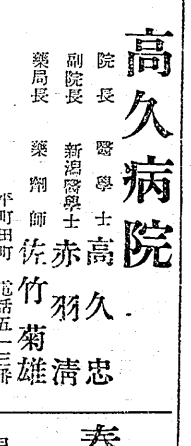 高久病院
院長 醫學士 高久忠
副院長 新潟醫學士 赤羽清
藥局長 藥劑師 佐竹菊雄
平町田町 電話五一三番
春